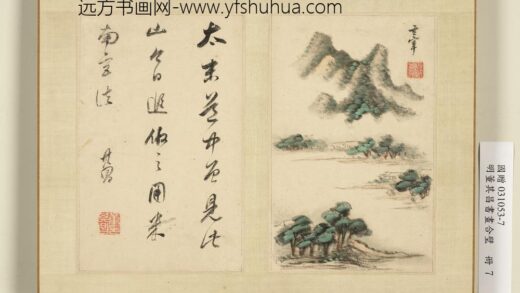 远方书画网-www.yfshuhua.com
玄宰
太末道中曾見此
山追倣之用米
南宮法
其昌
國贈 031053-7
明董其昌書畫合璧 冊 7